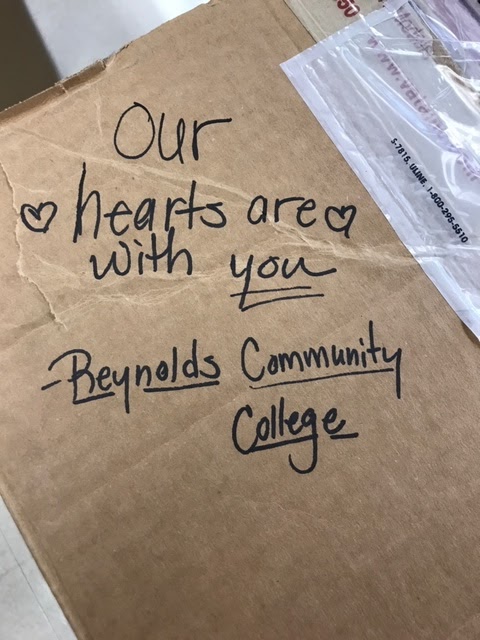 Our
♡ hearts are ♡
with you
-Reynolds Community
College
S-7815, ULINE, 1-800-295-5510